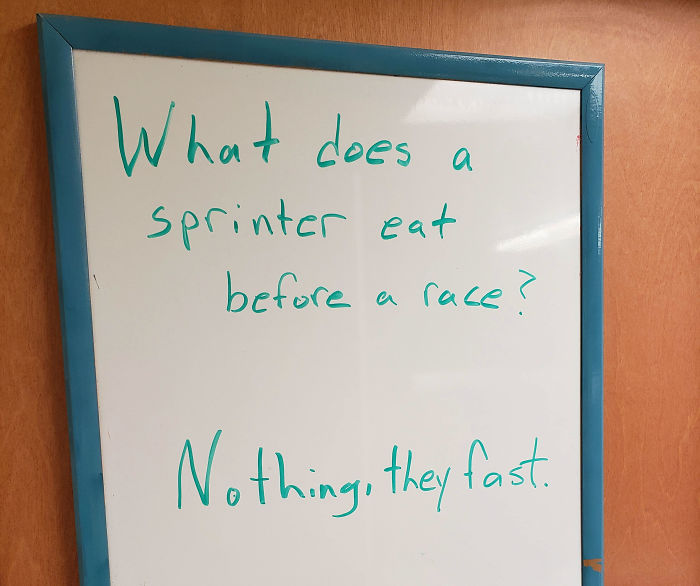 What does a
sprinter eat
before a race?
Nothing, they fast.